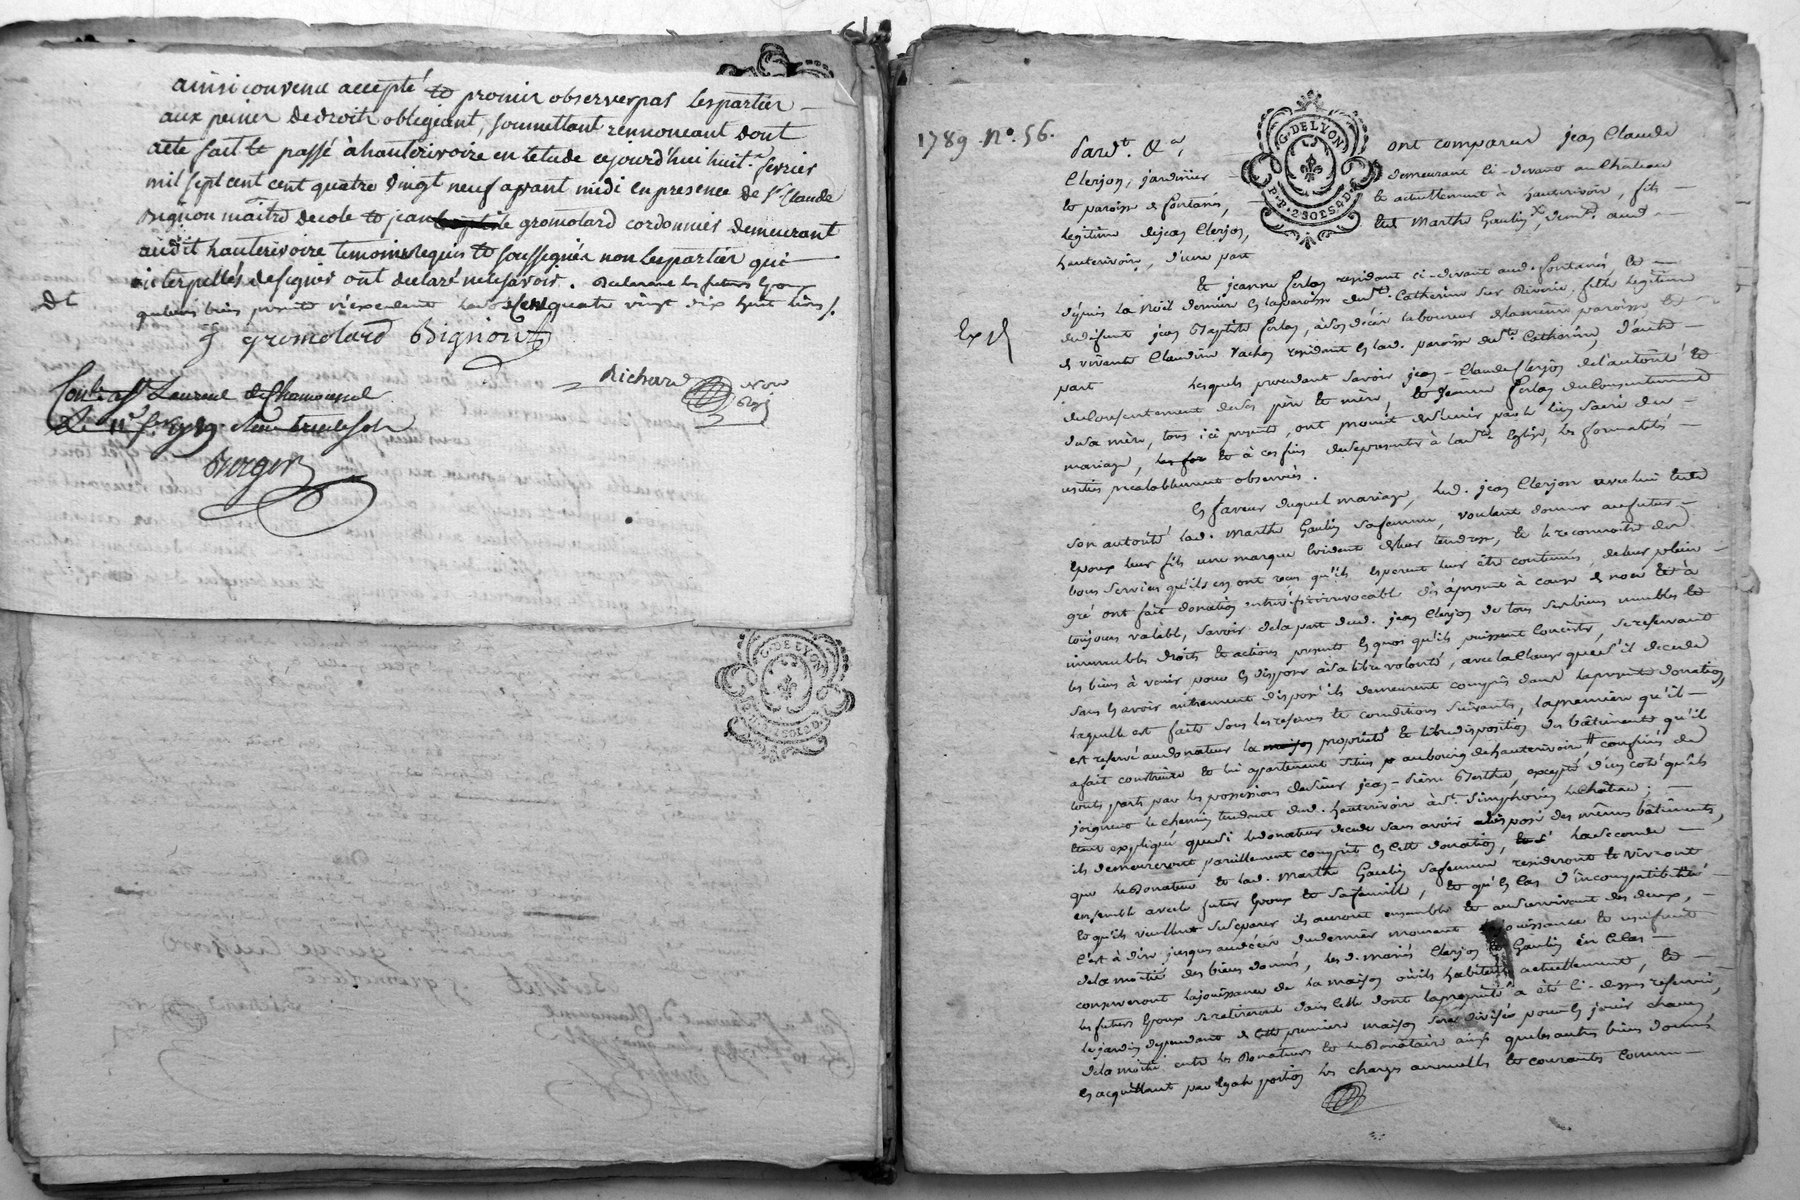 ainsi convenu accepté et promis observer par les parties
aux peines de droit obligeant, soumettant renonceant dont
acte fait et passé à hauterivoire en l'etude cejourd'hui huit fevrier
mil sept cent cent quatre vingt neuf avant midi en presence de Sr Claude
Bignon maitre decole et jean le gromolard cordonnier demeurant
audit hauterivoire temoins requis et soussignés non les parties qui
interpellés de signer ont declaré ne le savoir. Declarant les futurs Epoux
que leurs biens presents n'excedent quatre vingt dix huit livres /.
gromolard Bignon
Richard
Laurent de Chamousset
Berger
G. DE LYON
1789. No. 56.
G. DE LYON
P. P. 2 SOLS 4 D.
Pardt. &a, ont comparu jean Claude
Clerjon, jardinier demeurant ci-devant au Château
et paroisse de fontanès, et actuellement à hauterivoir, fils
legitime de jean Clerjon, et de Marthe Gaulin, demt. aud.
hauterivoir, d'une part
Et jeanne ferlay residant ci-devant aud. fontanès, et
depuis la Noël dernier en la paroisse de Ste. Catherine sur Riverie, fille legitime
de defunt jean Baptiste ferlay, à son décès laboureur de la même paroisse et
de vivante Claudine Vachon residant en lad. paroisse de Ste. Catherine, d'autre
part Lesquels procedant savoir jean-Claude Clerjon de l'autorité et
du consentement de ses père et mère, et jeanne ferlay du consentement
de sa mère, tous ici presents, ont promit de s'unir par le lien sacré du
mariage, et à ces fins de se presenter à la Ste. Eglise, les formalités
usitées prealablement observées.
En faveur duquel mariage, led. jean Clerjon avec lui et de
son autorité lad. Marthe Gaulin sa femme, voulant donner au futur
Epoux leur fils une marque Evidente de leur tendresse, et le reconnoitre des
bons services qu'ils en ont reçu qu'ils esperent leur être continués, de leur plein
gré ont fait donation entre vifs irrevocable dès à present à cause de noce et à
toujours valable, savoir de la part dud. jean Clerjon de tous ses biens meubles et
immeubles droits et actions presents en quoi qu'ils puissent concister, se reservant
les biens à venir pour en disposer à sa libre volonté, avec la Clause que s'il decede
sans en avoir autrement disposé ils demeurent compris dans la presente donation,
laquelle est faite sous les reserves et conditions suivantes, la premiere qu'il
est reservé au donateur la propriété et libre disposition des bâtiments qu'il
a fait construire et lui appartenant situés au bourg de hauterivoir confinés de
toute parts par les possessions de sieur jean-Pierre Berthet, excepté d'un coté qu'ils
joignent le chemin tendant dud. hauterivoir à St. Simphorien le Château,
étant expliqué que si le donateur decede sans avoir disposé des mêmes bâtiments,
ils demeureront pareillement compris en cette donation, la seconde
que le Donateur et lad. Marthe Gaulin sa femme resideront et vivront
ensemble avec le futur Epoux et sa famille, et qu'en cas d'incompatibilité
et qu'ils veuillent se separer ils auront ensemble et au survivant des deux,
c'est à dire jusques au décès du dernier mourant jouissance et usufruit
de la moitié des biens donnés, les d. mariés Clerjon et Gaulin en ce cas
conserveront la jouissance de la maison où ils habitent actuellement, et
les futurs Epoux se retireront dans celle dont la propriété a été ci-dessus reservée,
le jardin dependant de cette premiere maison sera divisée pour en jouir chacun
de la moitié entre les Donateurs et le Donataire ainsi que les autres biens donnés
en acquittant par egale portion les charges annuelles et courantes comme